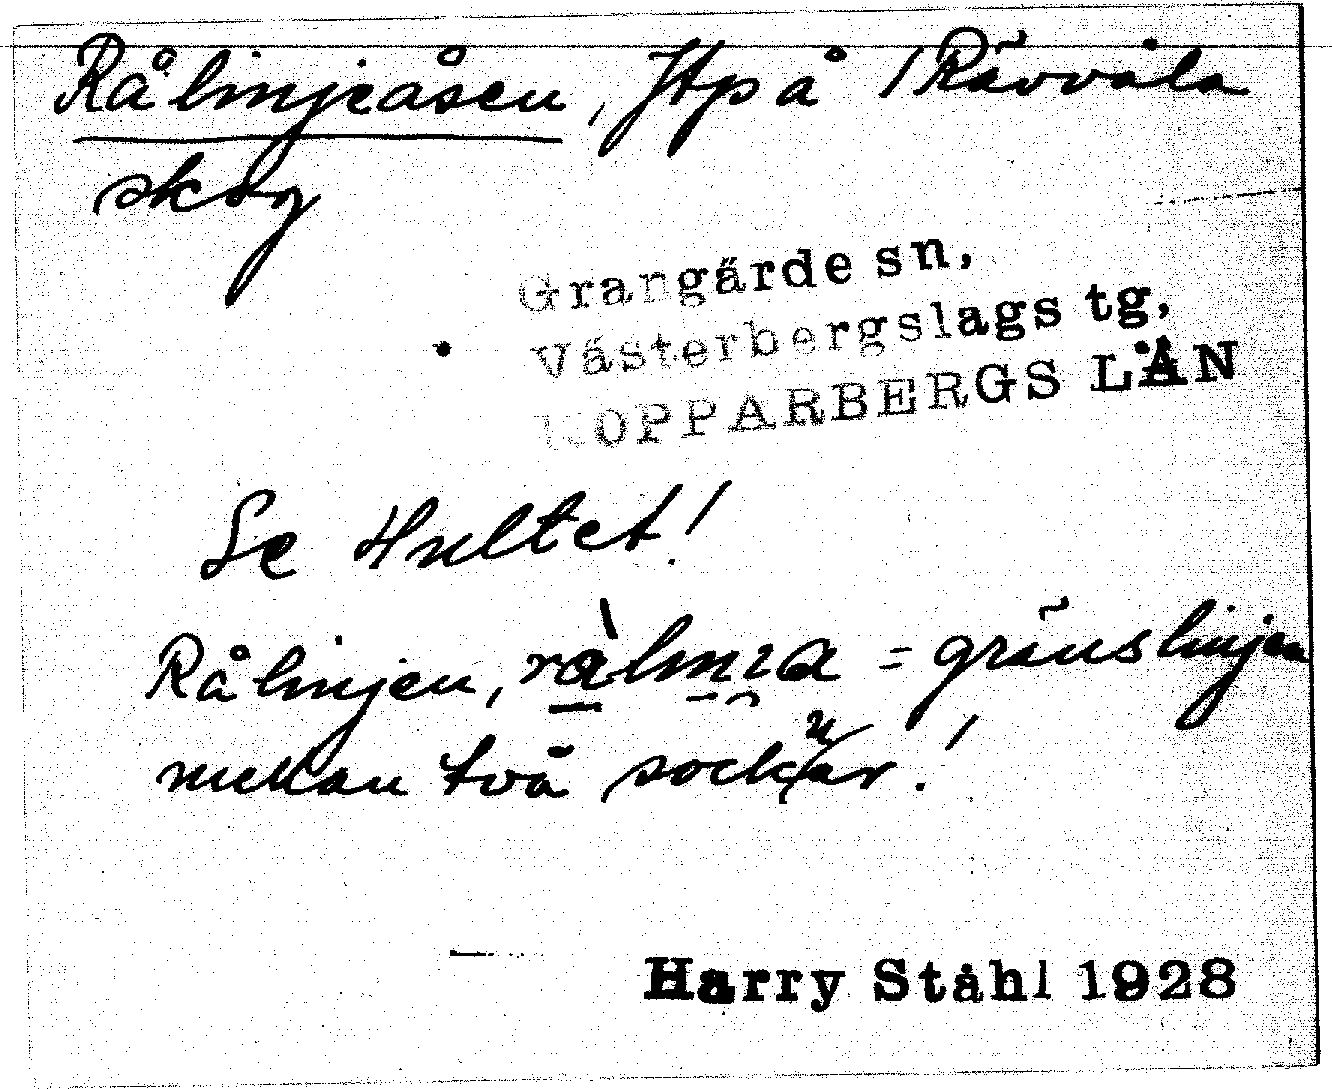 Rålinjeåsen, Htp å /Rävvåla
skog
Grangärde sn,
Västerbergslags tg,
KOPPARBERGS LÄN
Se Hultet!
Rålinjen, ràlinıa = gränslinjen
mellan två socknar!
Harry Ståhl 1928